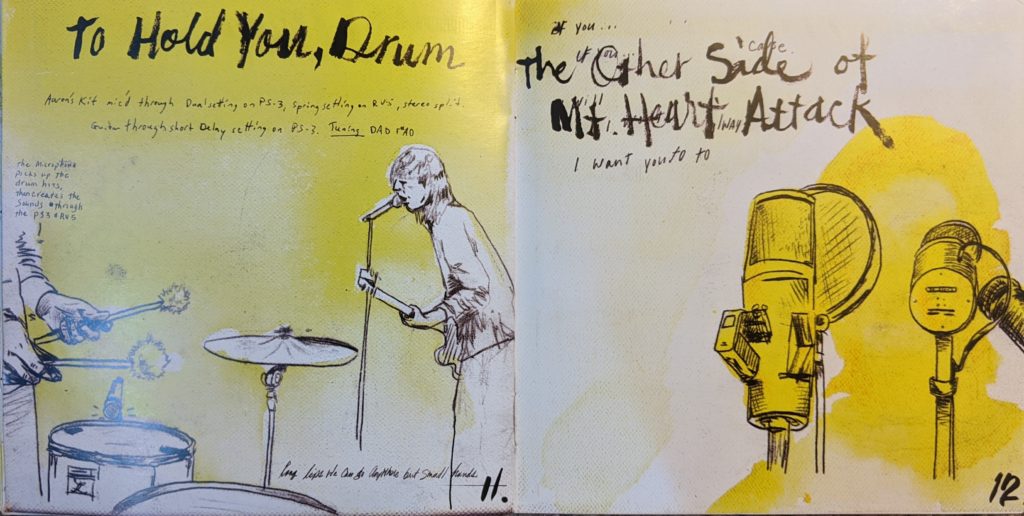 To Hold You, Drum
Aaron's Kit mic'd through Dual setting on PS-3, Spring setting on RV-5, stereo split.
Guitar through short Delay setting on PS-3. Tuning DAD F#AD
the Microphone
picks up the
drum hits,
then creates the
sounds through
the PS3 & RV5
Long live We Can do Anything but Small Hands
11.
if you...
if you... Cafe.
The Other Side of
Mt. Heart Attack
WAY
I want you to to
12